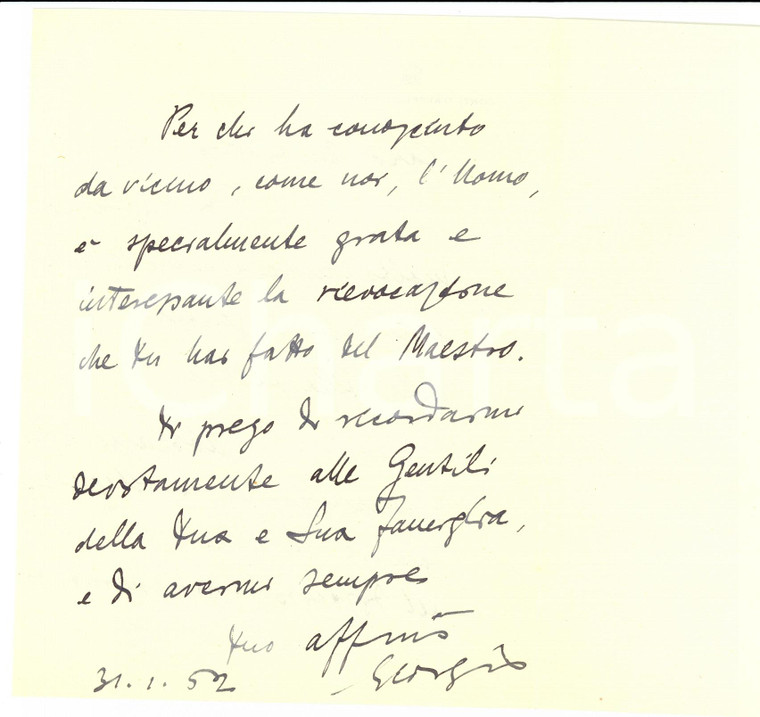 Per chi ha conosciuto
da vicino, come noi, l'Uomo,
è specialmente grata e
interessante la rievocazione
che tu hai fatto del Maestro.
Ti prego di ricordarmi
devotamente alle Gentili
della tua e Sua famiglia,
e di avermi sempre
tuo affmo
Giorgio
31.1.52
iCharta